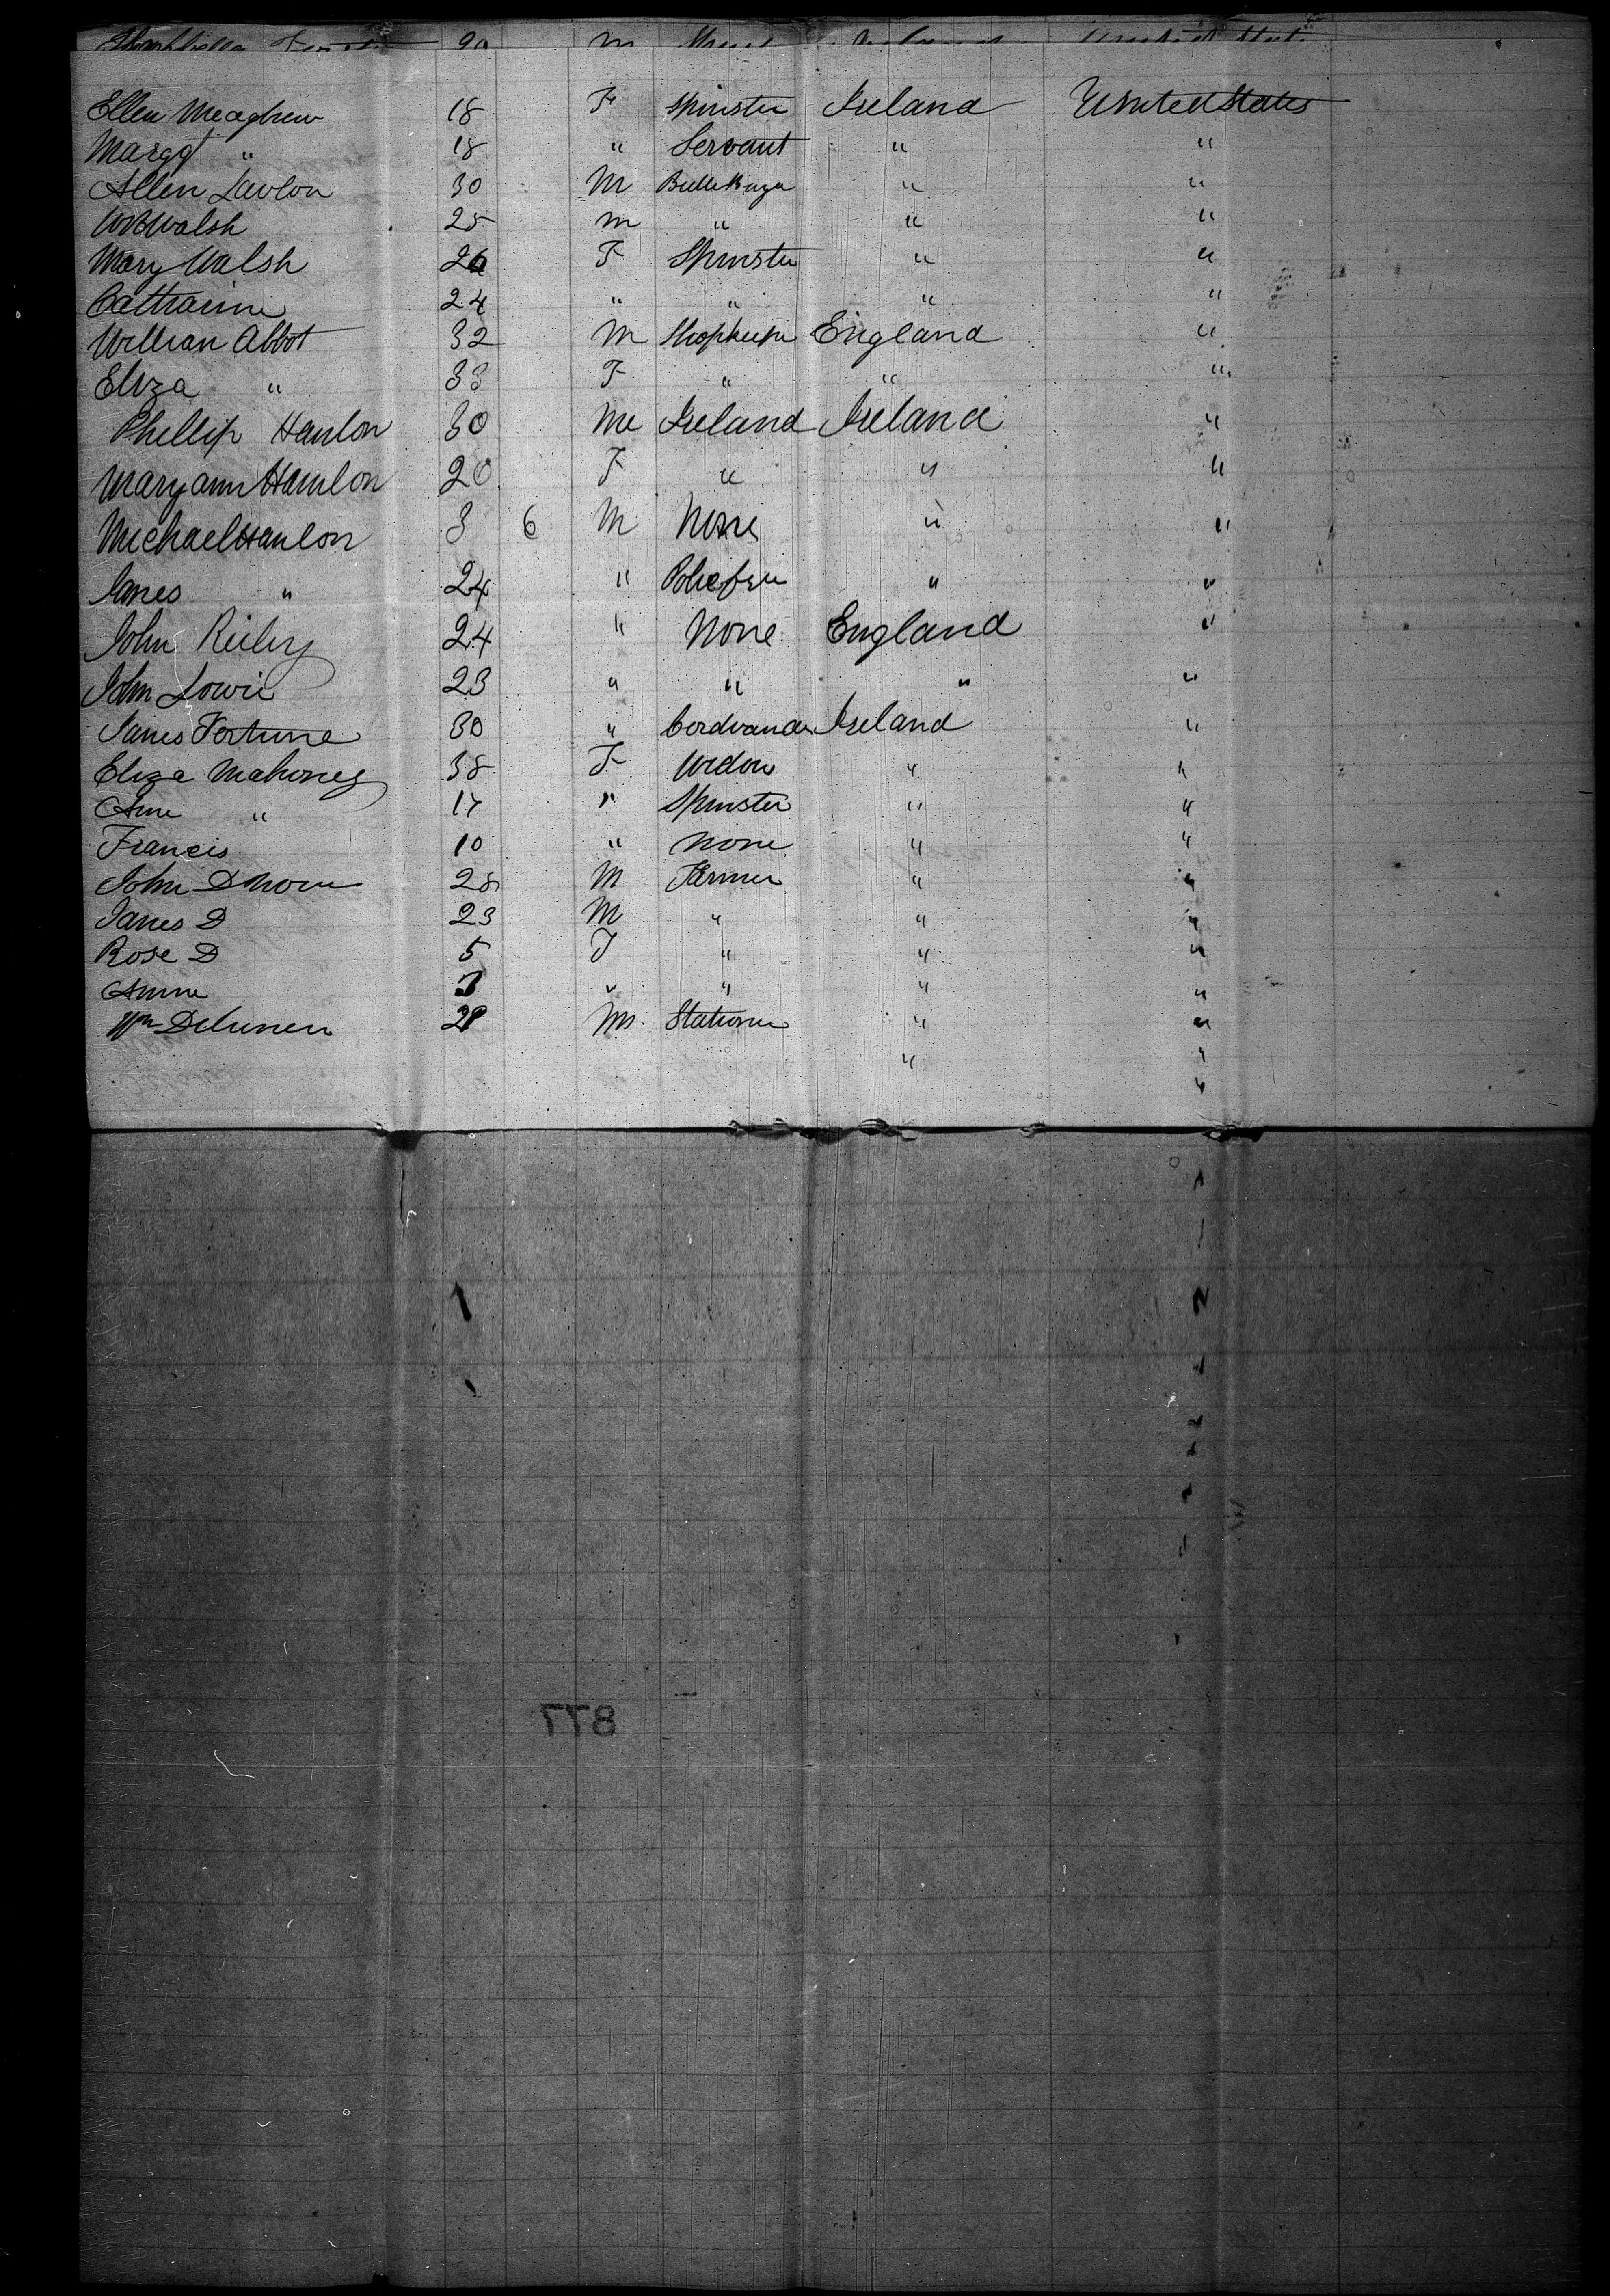 20 M
Ellen Meaghrew 18 F Spinster Ireland United States
Margt " 18 " Servant " "
Allen Lawlon 30 M " "
Wm Walsh 25 m " " "
Mary Walsh 26 F Spinster " "
Catharine 24 " " " "
William Abbot 32 M Shopkeeper England "
Eliza " 33 F " " "
Phillip Hanlon 30 M Ireland Ireland "
Maryann Hanlon 20 F " " "
Michael Hanlon 3 6 M None " "
James " 24 " " "
John Reiley 24 " None England "
John Lowie 23 " " " "
James Fortune 30 " Cordwander Ireland "
Eliza Mahoney 38 F Widow " "
Ann " 17 " Spinster " "
Francis 10 " None " "
John 28 M Farmer " "
James D 23 M " " "
Rose D 5 F " " "
Anne " " " "
Wm M Stationer " "
" "
"
877